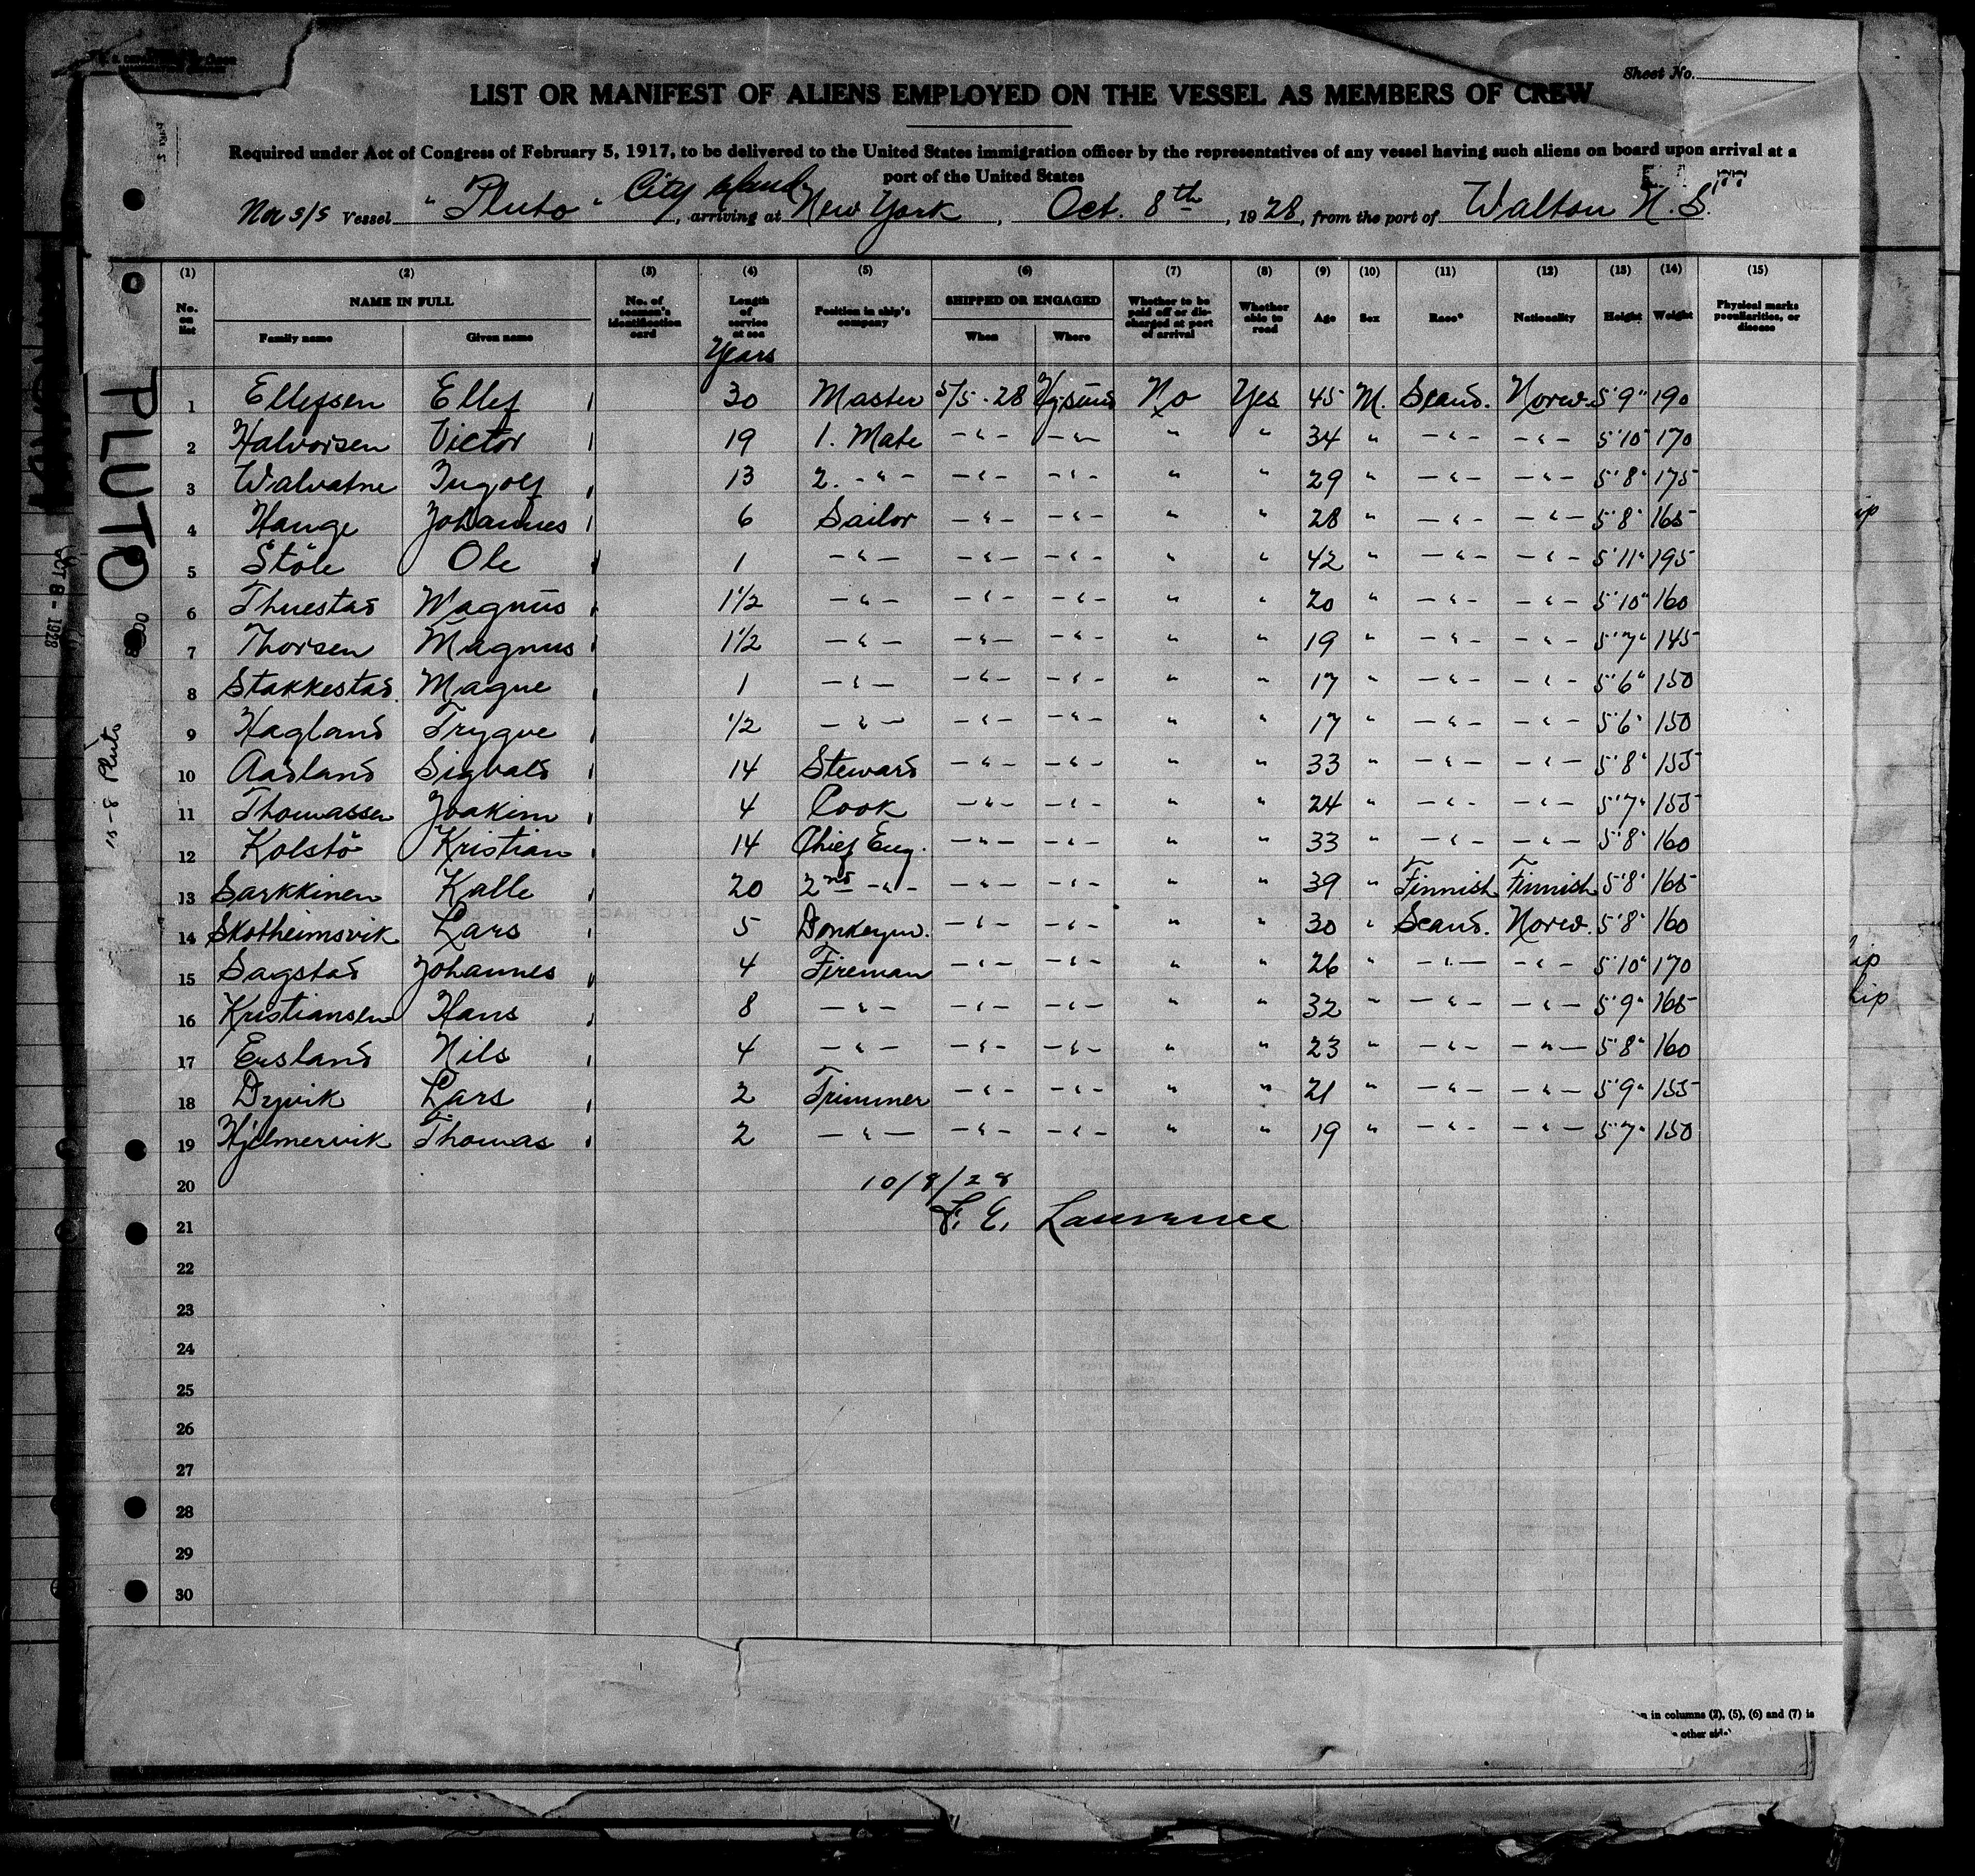 Sheet No.
LIST OR MANIFEST OF ALIENS EMPLOYED ON THE VESSEL AS MEMBERS OF CREW
Required under Act of Congress of February 5, 1917, to be delivered to the United States immigration officer by the representatives of any vessel having such aliens on board upon arrival at a
port of the United States
City Island
Nor s/s Vessel "Pluto", arriving at New York, Oct. 8th, 1928, from the port of Walton N.S.
(1) (2) (3) (4) (5) (6) (7) (8) (9) (10) (11) (12) (13) (14) (15)
No. on list NAME IN FULL Family name Given name No. of seaman's identification card Length of service at sea Years Position in ship's company SHIPPED OR ENGAGED When Where Whether to be paid off or discharged at port of arrival Whether able to read Age Sex Race* Nationality Height Weight Physical marks peculiarities, or disease
1 Ellefsen Ellef 30 Master 5/5-28 No Yes 45 M. Scand. Norw. 5'9" 190
2 Halvorsen Victor 19 1. Mate -"- -"- " " 34 " -"- -"- 5'10" 170
3 Walvatne Ingolf 13 2. -"- -"- -"- " " 29 " -"- -"- 5'8" 175
4 Hauge Johannes 6 Sailor -"- -"- " " 28 " -"- -"- 5'8" 165
5 Støle Ole 1 -"- -"- -"- " " 42 " -"- -"- 5'11" 195
6 Thuestad Magnus 1½ -"- -"- -"- " " 20 " -"- -"- 5'10" 160
7 Thorsen Magnus 1½ -"- -"- -"- " " 19 " -"- -"- 5'7" 145
8 Stakkestad Magne 1 -"- -"- -"- " " 17 " -"- -"- 5'6" 150
9 Hagland Trygve ½ -"- -"- -"- " " 17 " -"- -"- 5'6" 150
10 Aadland Sigvald 14 Steward -"- -"- " " 33 " -"- -"- 5'8" 155
11 Thomassen Joakim 4 Cook -"- -"- " " 24 " -"- -"- 5'7" 155
12 Kolstö Kristian 14 Chief Eng. -"- -"- " " 33 " -"- -"- 5'8" 160
13 Sarkkinen Kalle 20 2nd -"- -"- -"- " " 39 " Finnish Finnish 5'8" 165
14 Skotheimsvik Lars 5 Donkeym. -"- -"- " " 30 " Scand. Norw. 5'8" 160
15 Sagstad Johannes 4 Fireman -"- -"- " " 26 " -"- -"- 5'10" 170
16 Kristiansen Hans 8 -"- -"- -"- " " 32 " -"- -"- 5'9" 165
17 Ersland Nils 4 -"- -"- -"- " " 23 " -"- -"- 5'8" 160
18 Dyvik Lars 2 Trimmer -"- -"- " " 21 " -"- -"- 5'9" 155
19 Hjelmervik Thomas 2 -"- -"- -"- " " 19 " -"- -"- 5'7" 150
20 10/8/28
21 F. E. Lawrence
22
23
24
25
26
27
28
29
30
in columns (2), (5), (6) and (7) is
other side
PLUTO
OCT 8 - 1928
10-8 Pluto
ip
hip
hip